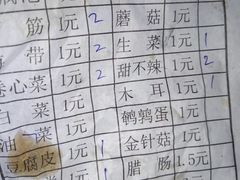 筋 1元 2 蘑菇 1元
带 1元 2 生菜 1元 1
卷心菜 1元 2 甜不辣 1元 2
白菜 1元 木耳 1元 1
油菠 1元 鹌鹑蛋 1元
豆腐皮 1元 金针菇 1元 1
1元 腊肠 1.5元